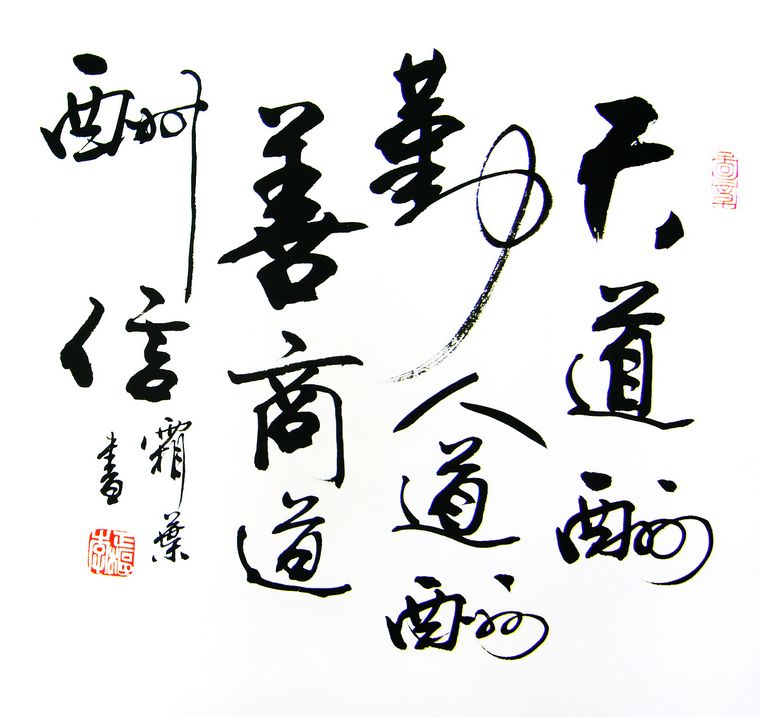 天道酬
勤人道酬
善商道
酬信
霜葉
書